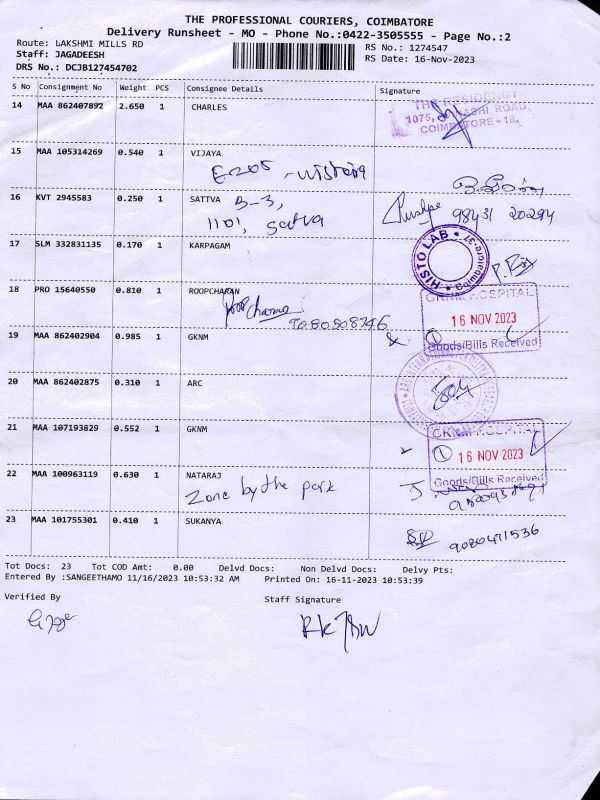 THE PROFESSIONAL COURIERS, COIMBATORE
Delivery Runsheet - MO - Phone No.:0422-3505555 - Page No.:2
Route: LAKSHMI MILLS RD
RS No.: 1274547
Staff: JAGADEESH
RS Date: 16-Nov-2023
DRS No.: DCJB127454702
S No Consignment No Weight PCS Consignee Details Signature
14 MAA 862407892 2.650 1 CHARLES
THE RESIDENCY
1075, ROAD
COIMBATORE - 18.
15 MAA 105314269 0.540 1 VIJAYA
E-205
16 KVT 2945583 0.250 1 SATTVA B-3,
1101, Satva
Pushpa 98431 20294
17 SLM 332831135 0.170 1 KARPAGAM
HISTO LAB Coimbatore-37
18 PRO 15640550 0.810 1 ROOPCHARAN
Roopcharan
9080808246
HOSPITAL
16 NOV 2023
Goods/Bills Received
19 MAA 862402904 0.985 1 GKNM
20 MAA 862402875 0.310 1 ARC
21 MAA 107193829 0.552 1 GKNM
GKNM HOSPITAL
16 NOV 2023
Goods/Bills Received
22 MAA 100963119 0.630 1 NATARAJ
Zone by the park
23 MAA 101755301 0.410 1 SUKANYA
Tot Docs: 23 Tot COD Amt: 0.00 Delvd Docs: Non Delvd Docs: Delvy Pts:
Entered By :SANGEETHAMO 11/16/2023 10:53:32 AM Printed On: 16-11-2023 10:53:39
Verified By
Staff Signature